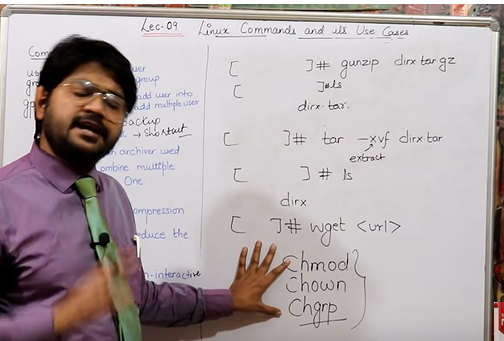 Lec-09 Linux Commands and its Use Cases
Com
us
gr
gp
user
group
add user into
add multiple user
backup
→ Shortcut
archiver used
combine multiple
One
compression
reduce the
n-interactive
[ ]# gunzip dirx.tar.gz
[ ]# ls
dirx.tar.
[ ]# tar -xvf dirx.tar
extract
[ ]# ls
dirx
[ ]# wget <url>
Chmod
Chown
Chgrp